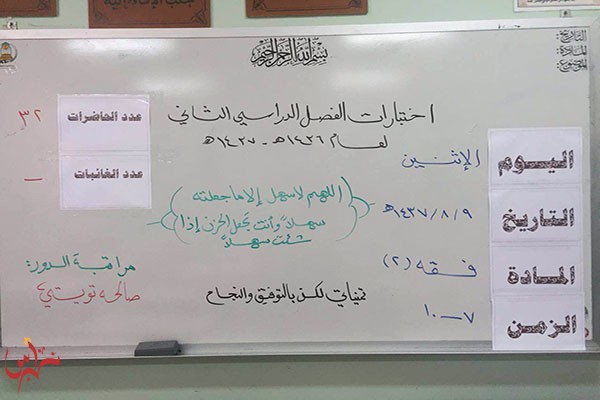 بسم الله الرحمن الرحيم
التاريخ:
المادة:
الموضوع:
اختبارات الفصل الدراسي الثاني
لعام ١٤٣٦هـ - ١٤٣٧هـ
اليوم
الإثنين
التاريخ
١٤٣٧/٨/٩هـ
المادة
فقه (٢)
الزمن
٧ - ١٠
عدد الحاضرات
٣٢
عدد الغائبات
-
اللهم لا سهل إلا ما جعلته
سهلاً وأنت تجعل الحزن إذا
شئت سهلاً
تمنياتي لكن بالتوفيق والنجاح
مراقبة الدور:
صالحه